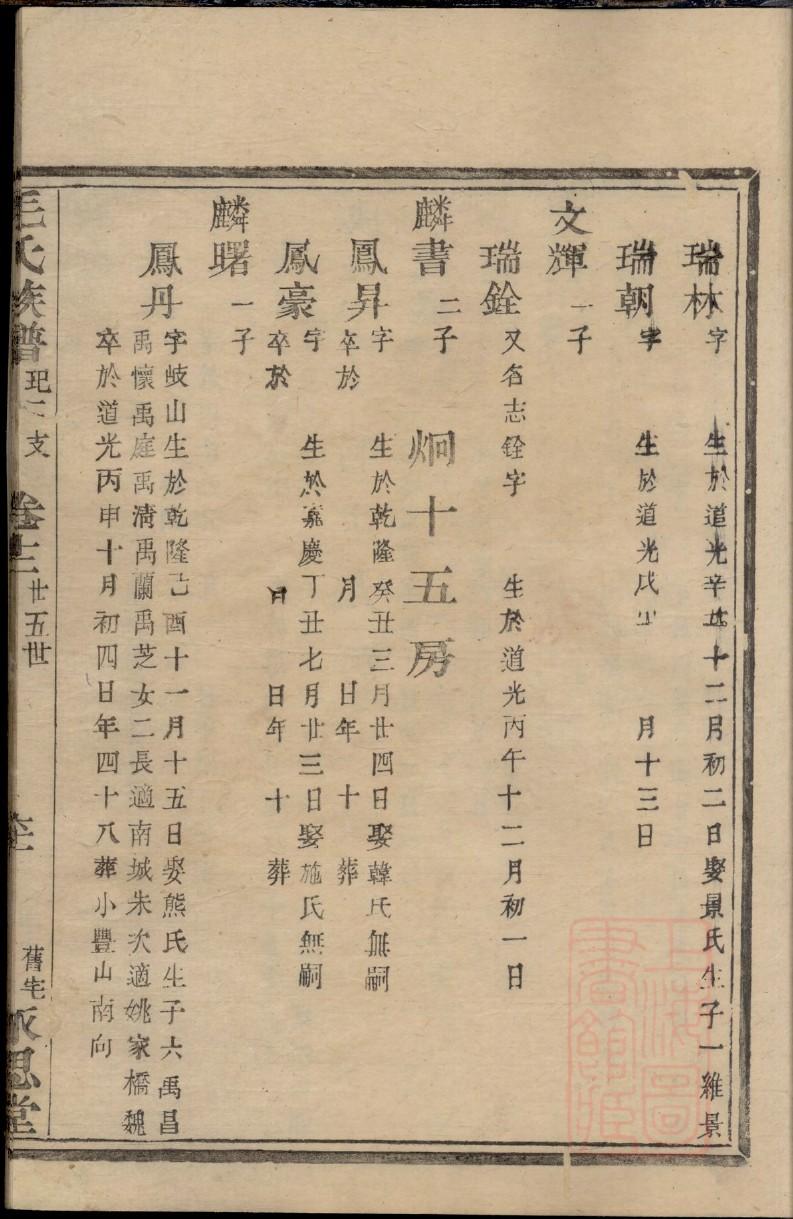 瑞林字 生於道光辛丑十二月初二日娶景氏生子一維景
瑞朝字 生於道光戊 月十三日
文輝一子
瑞銓又名志銓字 生於道光丙午十二月初一日
炯十五房
麟書二子
鳳昇字 生於乾隆癸丑三月廿四日娶韓氏無嗣
卒於 月 日年 十 葬
鳳豪字 生於嘉慶丁丑七月廿三日娶施氏無嗣
卒於 月 日年 十 葬
麟曙一子
鳳丹字岐山生於乾隆己酉十一月十五日娶熊氏生子六禹昌
禹懷禹庭禹清禹蘭禹芝女二長適南城朱次適姚家橋魏
卒於道光丙申十月初四日年四十八葬小豐山南向
毛氏族譜 玘二支 卷十三 廿五世 舊宅 永思堂